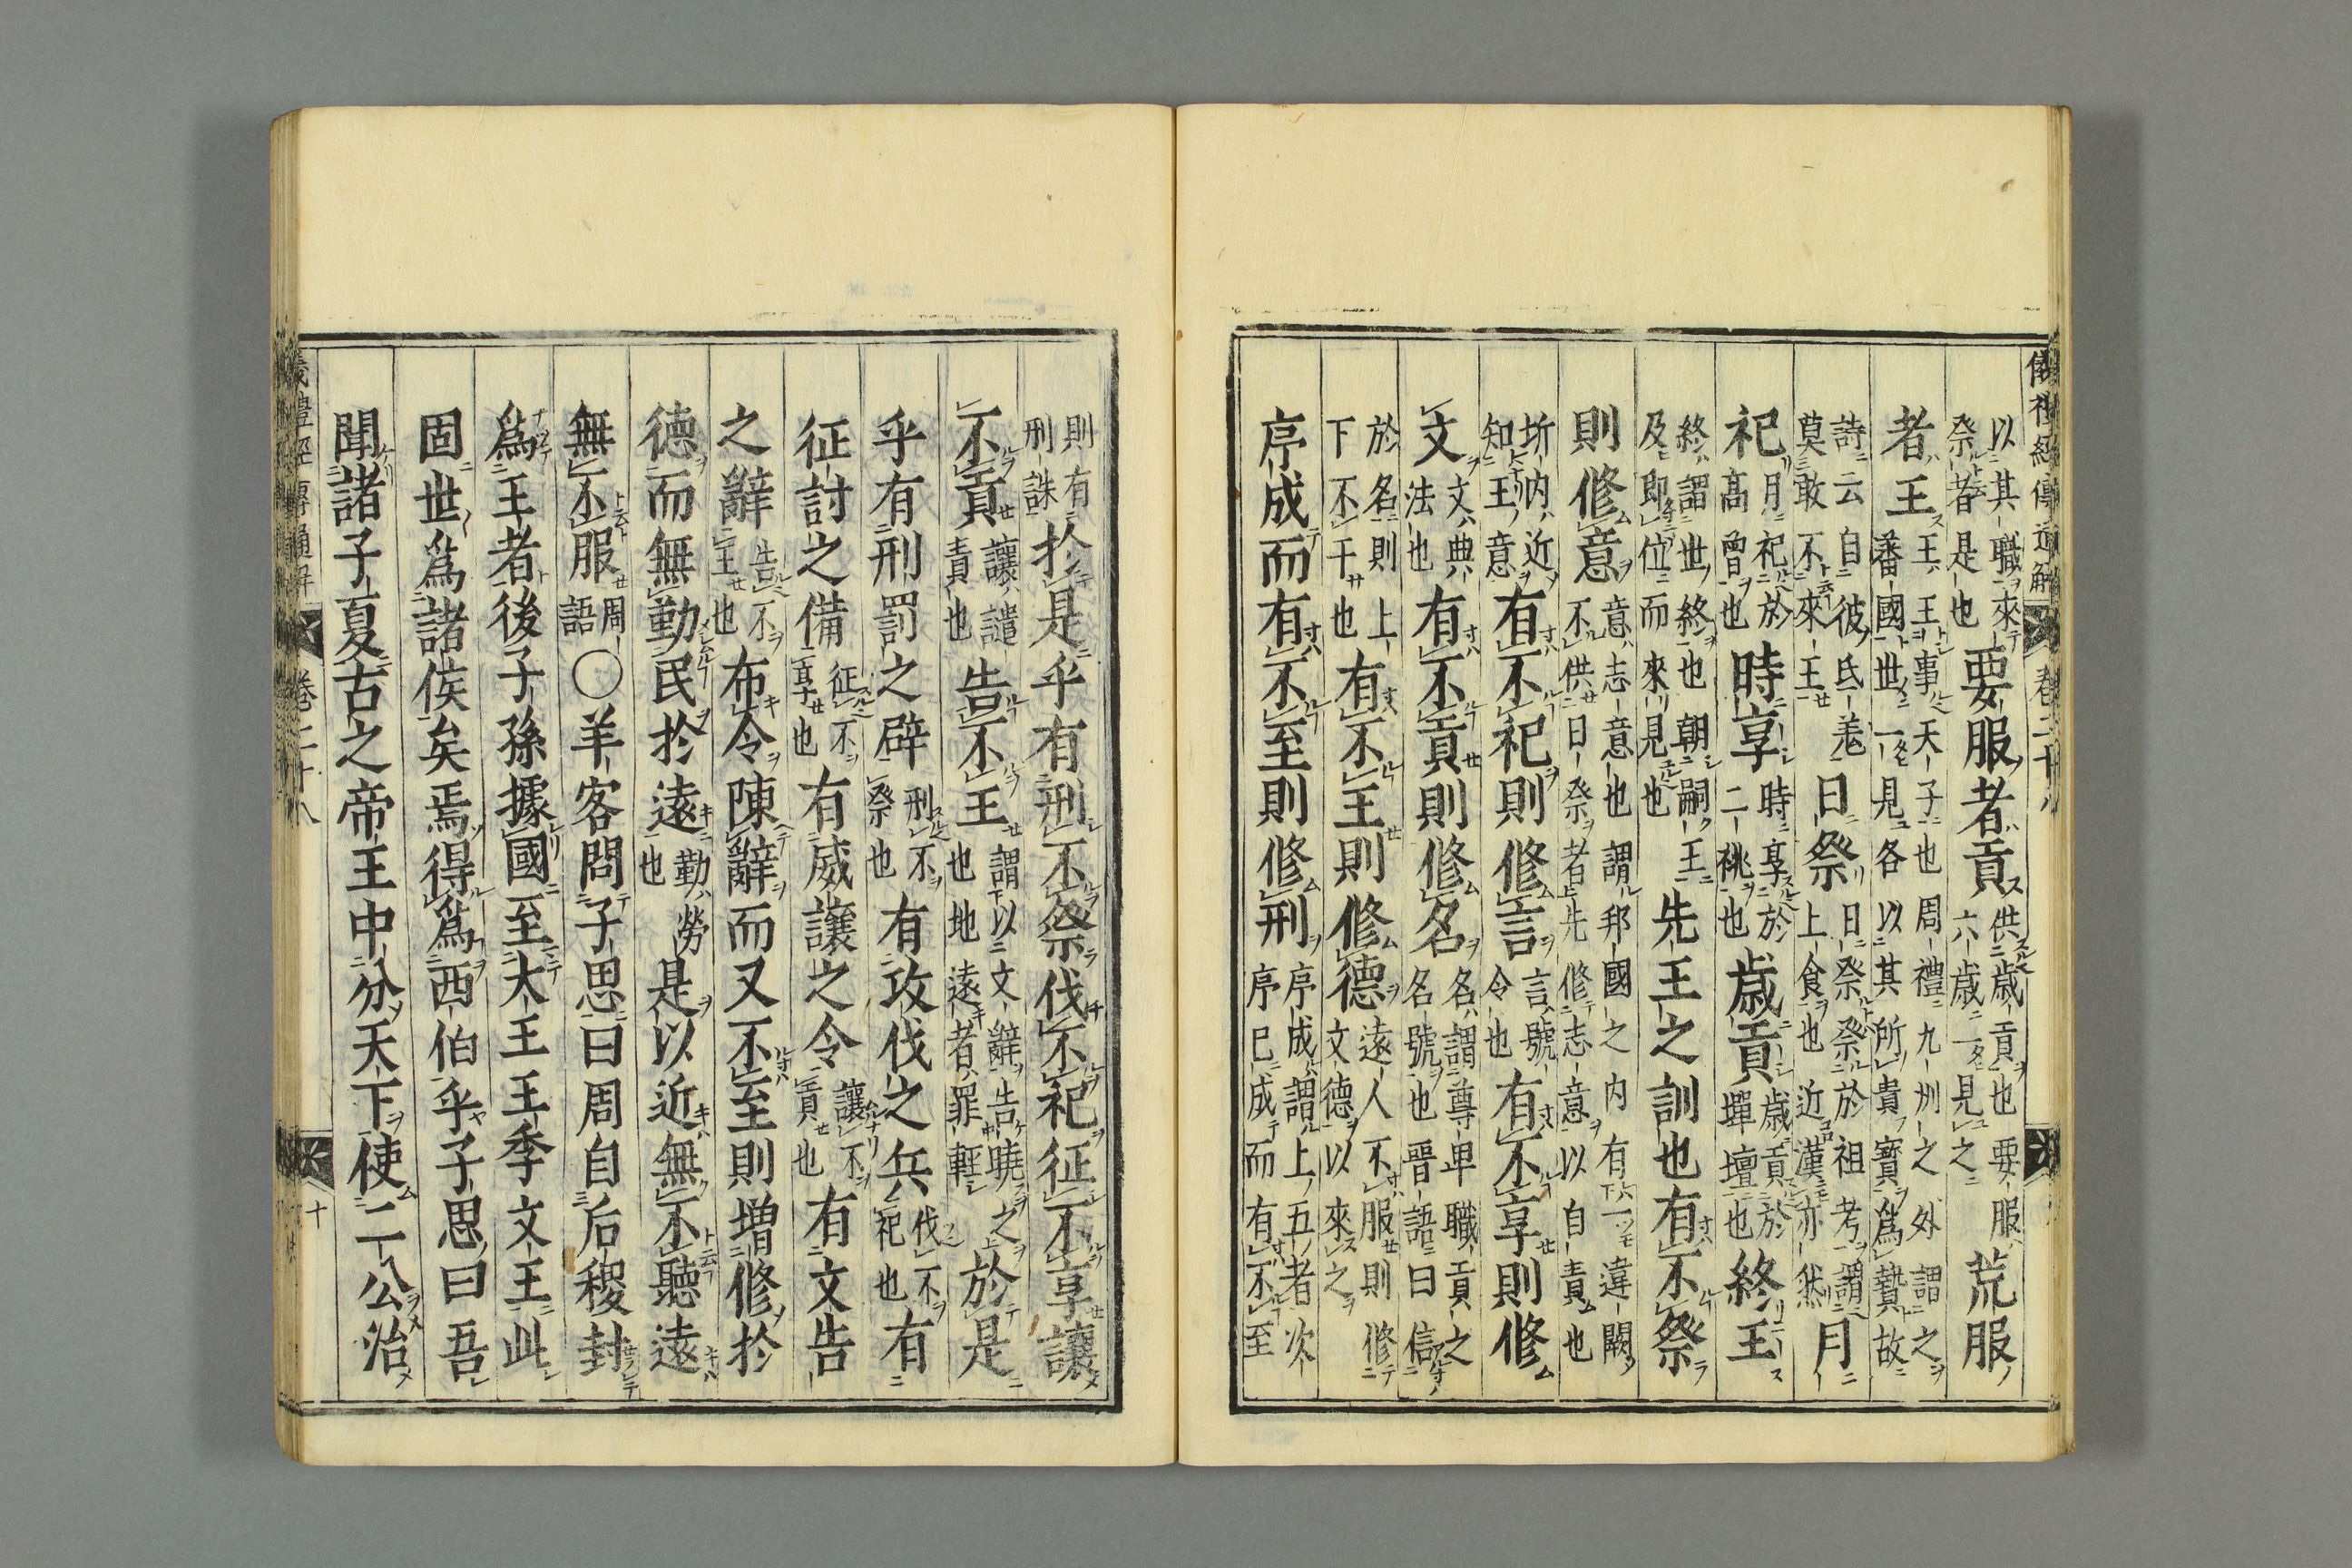 儀禮經傳通解 卷二十八
以其職來祭者是也要服者貢供歲貢也要服六歲一見之荒服
者王王王事天子也周禮九州之外謂之蕃國世一見各以其所貴寶爲贄故
詩云自彼氐羌莫敢不來王日祭日祭祭於祖考謂上食也近漢亦然月
祀月祀於高曾也時享時享於二祧也歲貢歲貢於墠壇也終王
終謂世終也朝嗣王及即位而來見也先王之訓也有不祭
則修意意志意也謂邦國之内有違闕不供日祭者先修志意以自責也
圻内近知王意有不祀則修言言號令也有不享則修
文文典法也有不貢則修名名謂尊卑職貢之名號也晉語曰信
於名則上下不干也有不王則修德遠人不服則修文德以來之
序成而有不至則修刑序成謂上五者次序已成而有不至
則有刑誅於是乎有刑不祭伐不祀征不享讓
不貢讓譴責也告不王謂以文辭告曉之也地遠者罪輕於是
乎有刑罰之辟刑不祭也有攻伐之兵伐不祀也有
征討之備征不享也有威讓之令讓不貢也有文告
之辭告不王也布令陳辭而又不至則増修於
德而無勤民於遠勤勞也是以近無不聽遠
無不服周語○羊客問子思曰周自后稷封
爲王者後子孫據國至大王王季文王此
固世爲諸侯矣焉得爲西伯乎子思曰吾
聞諸子夏古之帝王中分天下使二公治
儀禮經傳通解 卷二十八 十